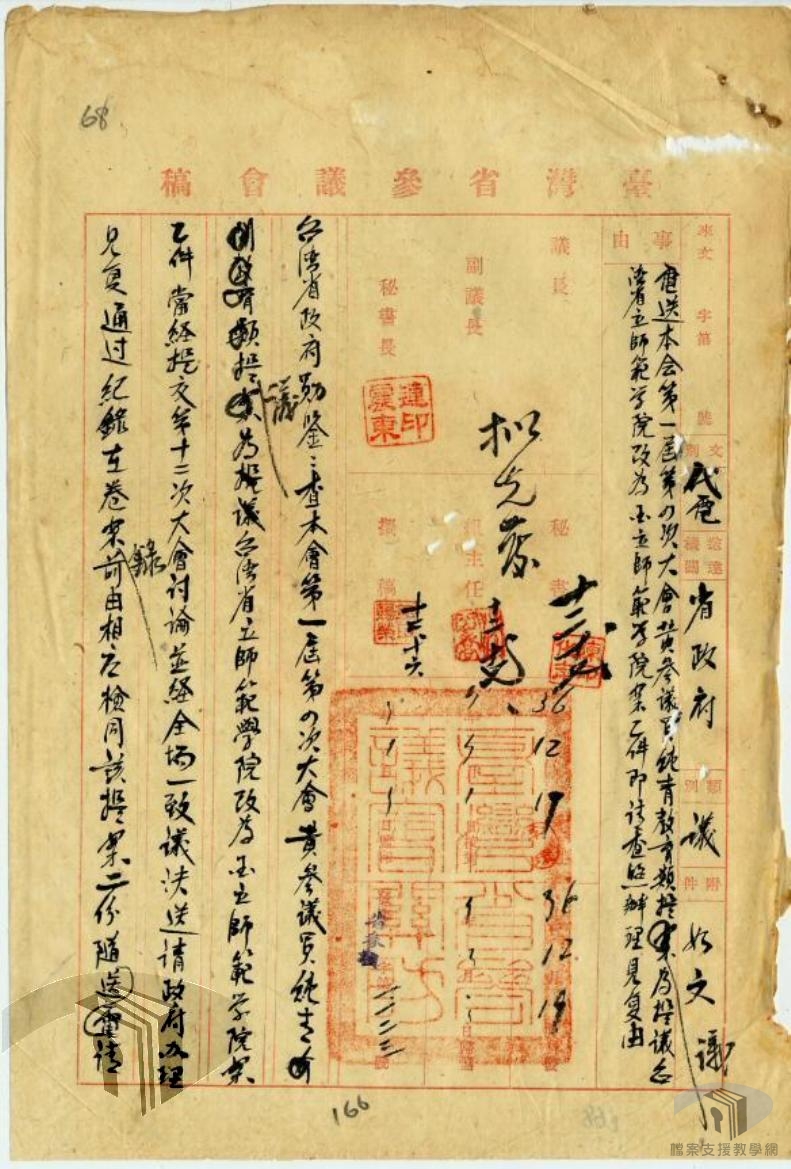 68
臺灣省參議會稿
來文 字第 號
文別 代電
送達機關 省政府
類別 議
附件 如文
事由
電送本会第一屆第四次大會黃參議員純青教育類提案為提議台
灣省立師範学院改為国立師範学院案乙件即請查照辦理見复由
議長
副議長
秘書長
連震東印
秘書
組主任
撰稿
36 12 17
36 12 19
臺灣省參議會關防
台灣省政府勛鑒：查本會第一屆第四次大會黃參議員純青
教育類提議為提議台灣省立師範學院改為国立師範学院案
乙件當經提交第十二次大會討論並經全場一致議決送請政府办理
見复通过紀錄在卷案錄前由相应檢同該提案二份隨送電請
166
檔案支援教學網